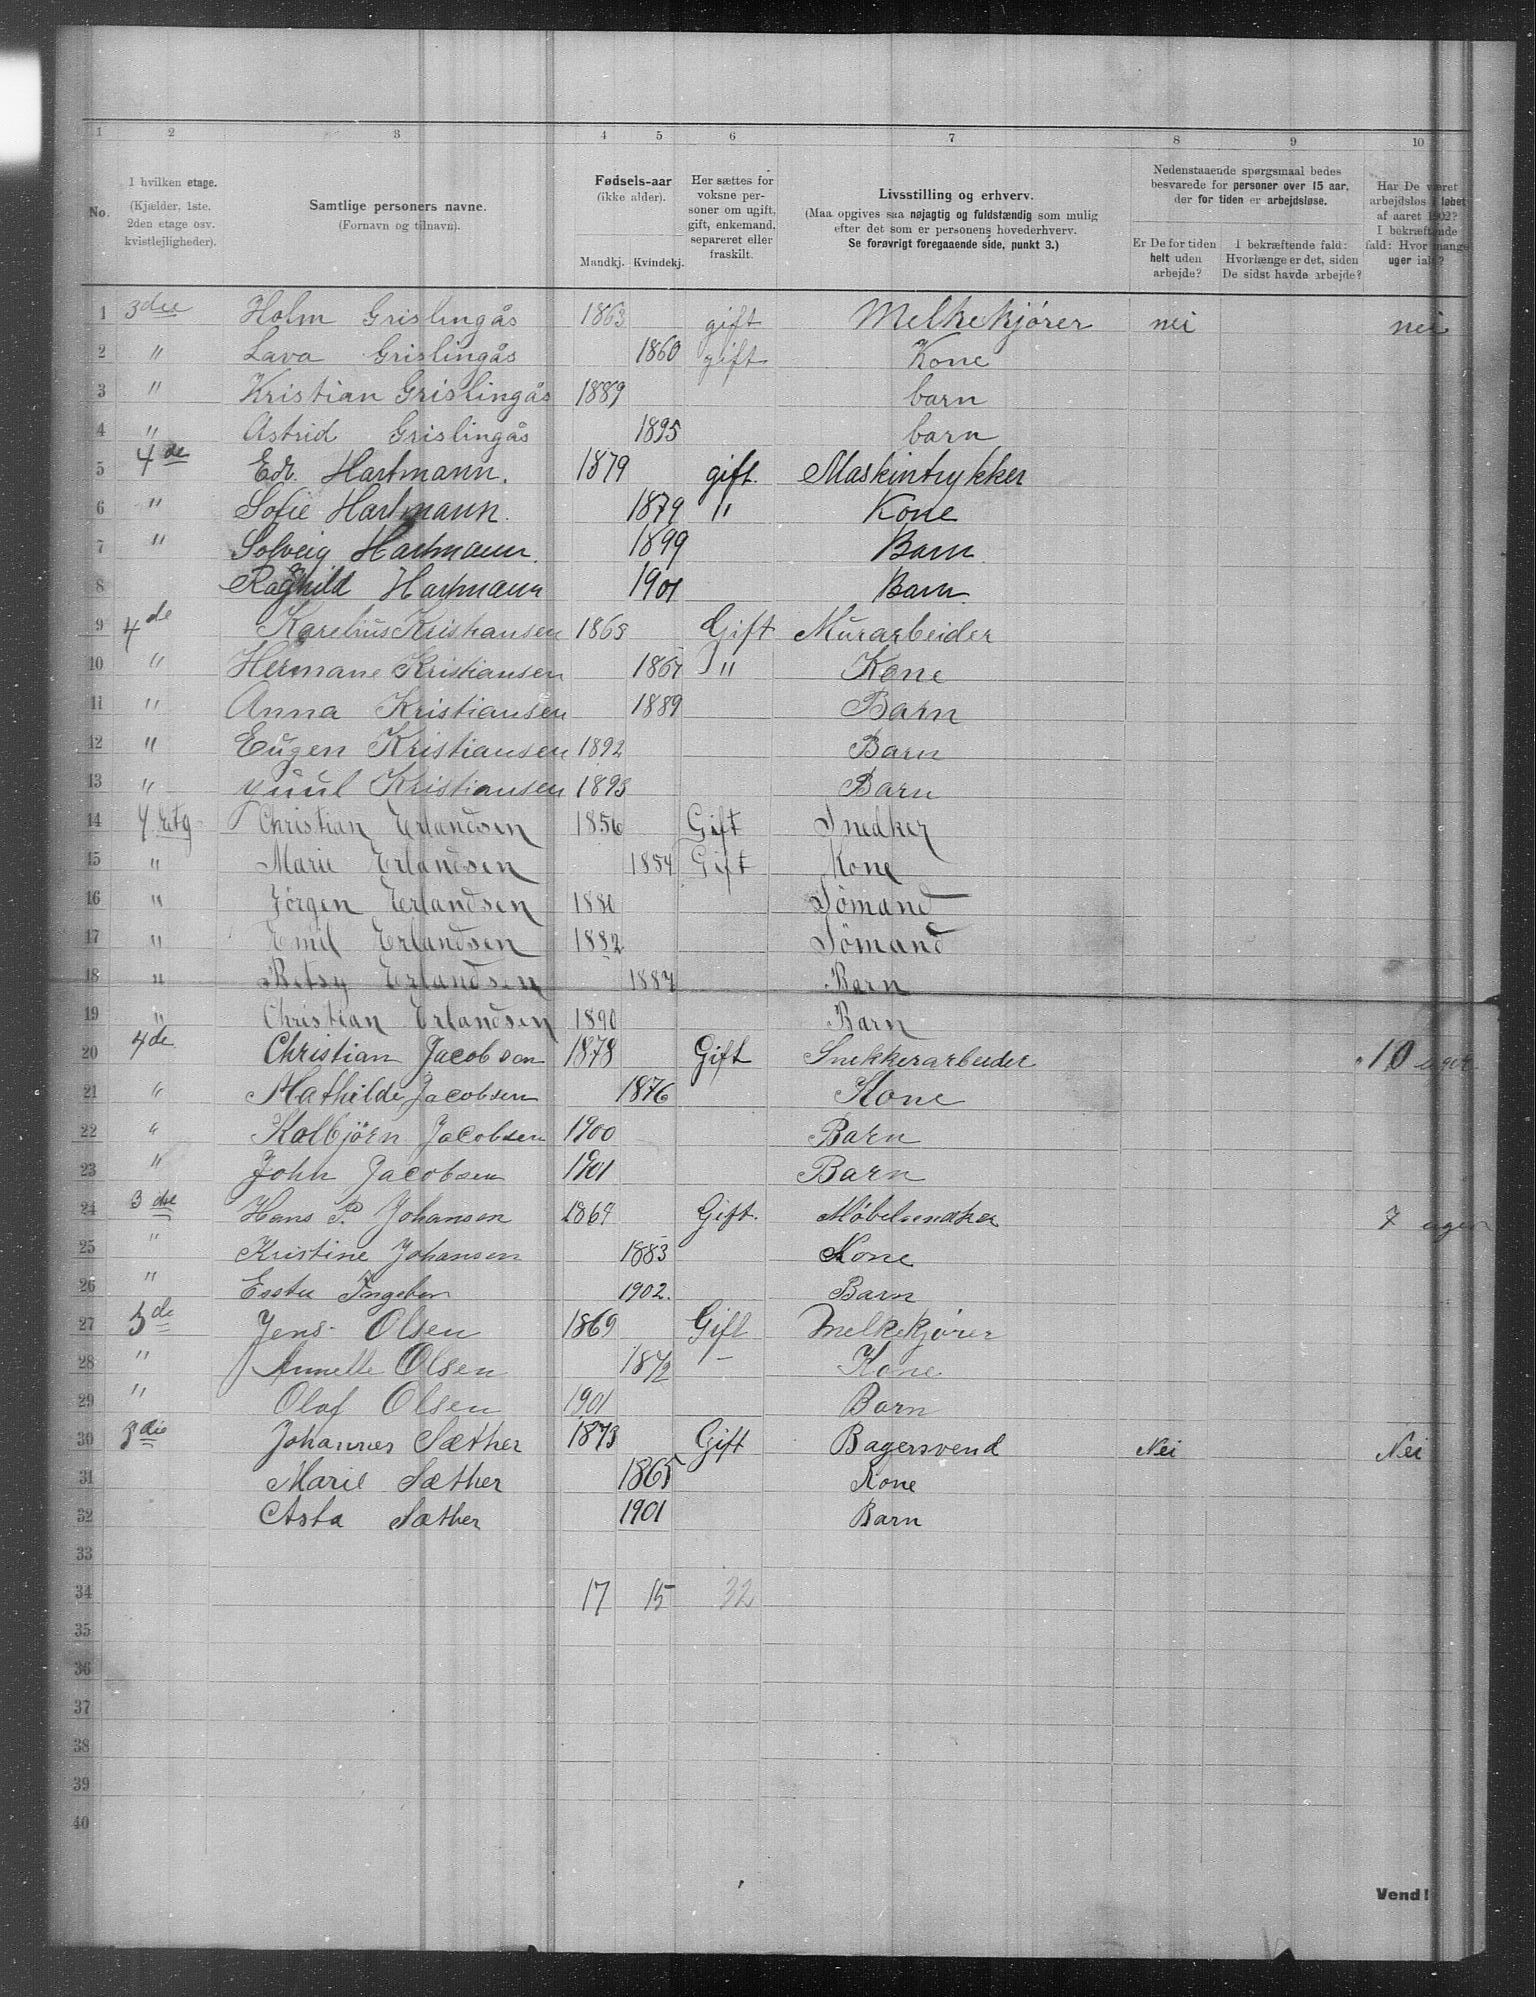 1 2 3 4 5 6 7 8 9 10
No.
I hvilken etage.
(Kjælder, 1ste,
2den etage osv.
kvistlejligheder).
Samtlige personers navne.
(Fornavn og tilnavn).
Fødsels-aar
(ikke alder).
Mandkj. Kvindekj.
Her sættes for
voksne per-
soner om ugift,
gift, enkemand,
separeret eller
fraskilt.
Livsstilling og erhverv.
(Maa opgives saa nøjagtig og fuldstændig som mulig
efter det som er personens hovederhverv.
Se forøvrigt foregaaende side, punkt 3.)
Nedenstaaende spørgsmaal bedes
besvarede for personer over 15 aar,
der for tiden er arbejdsløse.
Er De for tiden
helt uden
arbejde?
I bekræftende fald:
Hvorlænge er det, siden
De sidst havde arbejde?
Har De været
arbejdsløs i løbet
af aaret 1902?
I bekræftende
fald: Hvor mange
uger ialt?
1 3die Holm Grislingås 1863 gift Melkekjører nei nei
2 " Lava Grislingås 1860 gift Kone
3 " Kristian Grislingås 1889 barn
4 " Astrid Grislingås 1895 barn
5 4de Edv. Hartmann. 1879 gift. Maskintrykker
6 " Sofie Hartmann. 1879 " Kone
7 " Solveig Hartmann. 1899 Barn
8 Raghild Hartmann 1901 Barn.
9 4de Karelius Kristiansen 1865 Gift Murarbeider
10 " Hermane Kristiansen 1867 " Kone
11 " Anna Kristiansen 1889 Barn
12 " Eugen Kristiansen 1892 Barn
13 " Juul Kristiansen 1893 Barn
14 4 Etg Christian Erlandsen 1856 Gift Snedker
15 " Marie Erlandsen 1854 Gift Kone
16 " Jørgen Erlandsen 1880 Sømand
17 " Emil Erlandsen 1882 Sømand
18 " Betsy Erlandsen 1887 Barn
19 " Christian Erlandsen 1890 Barn
20 4de Christian Jacobsen 1878 Gift Snekkerarbeider 10 uger
21 " Mathilde Jacobsen 1876 Kone
22 " Kolbjörn Jacobsen 1900 Barn
23 " John Jacobsen 1901 Barn
24 3die Hans P. Johansen 1869 Gift. Møbelsnedker 7 uger
25 " Kristine Johansen 1883 Kone
26 " Ester Ingebor 1902. Barn
27 3de Jens Olsen 1869 Gift Melkekjører
28 " Annette Olsen 1872 – Kone
29 " Olaf Olsen 1901 Barn
30 3die Johannes Sæther 1873 Gift Bagersvend Nei Nei
31 Marie Sæther 1865 Kone
32 Asta Sæther 1901 Barn
33
34 17 15 32
35
36
37
38
39
40
Vend!